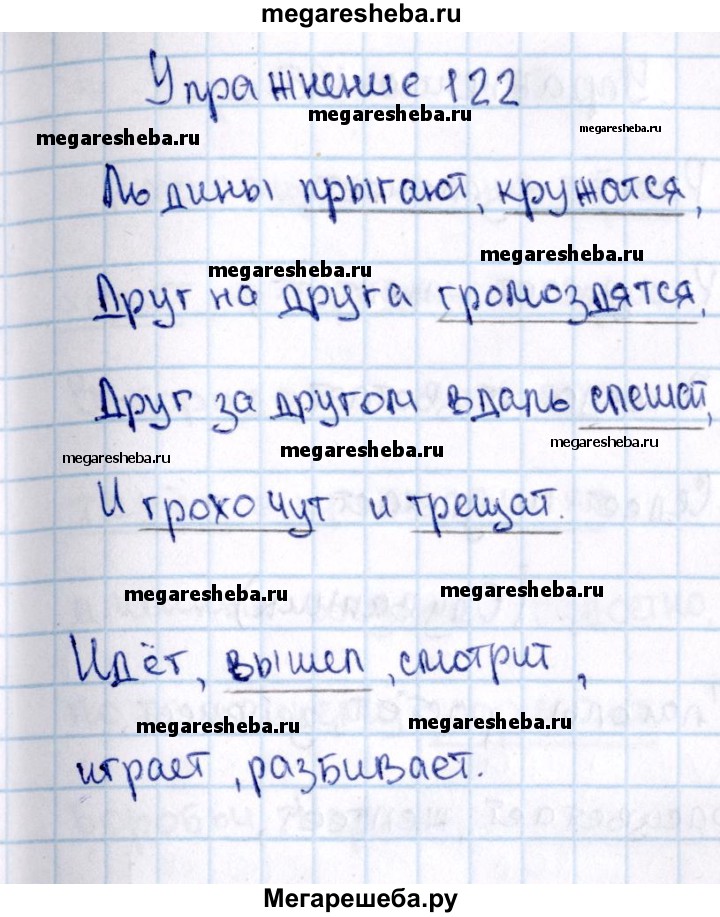 megaresheba.ru
Упражнение 122
megaresheba.ru
megaresheba.ru
megaresheba.ru
Льдины прыгают, кружатся,
megaresheba.ru
megaresheba.ru
Друг на друга громоздятся,
Друг за другом вдаль спешат,
megaresheba.ru
megaresheba.ru
megaresheba.ru
И грохочут и трещат.
megaresheba.ru
megaresheba.ru
Идёт, вышел, смотрит,
megaresheba.ru
megaresheba.ru
играет, разбивает.
Мегарешеба.ру